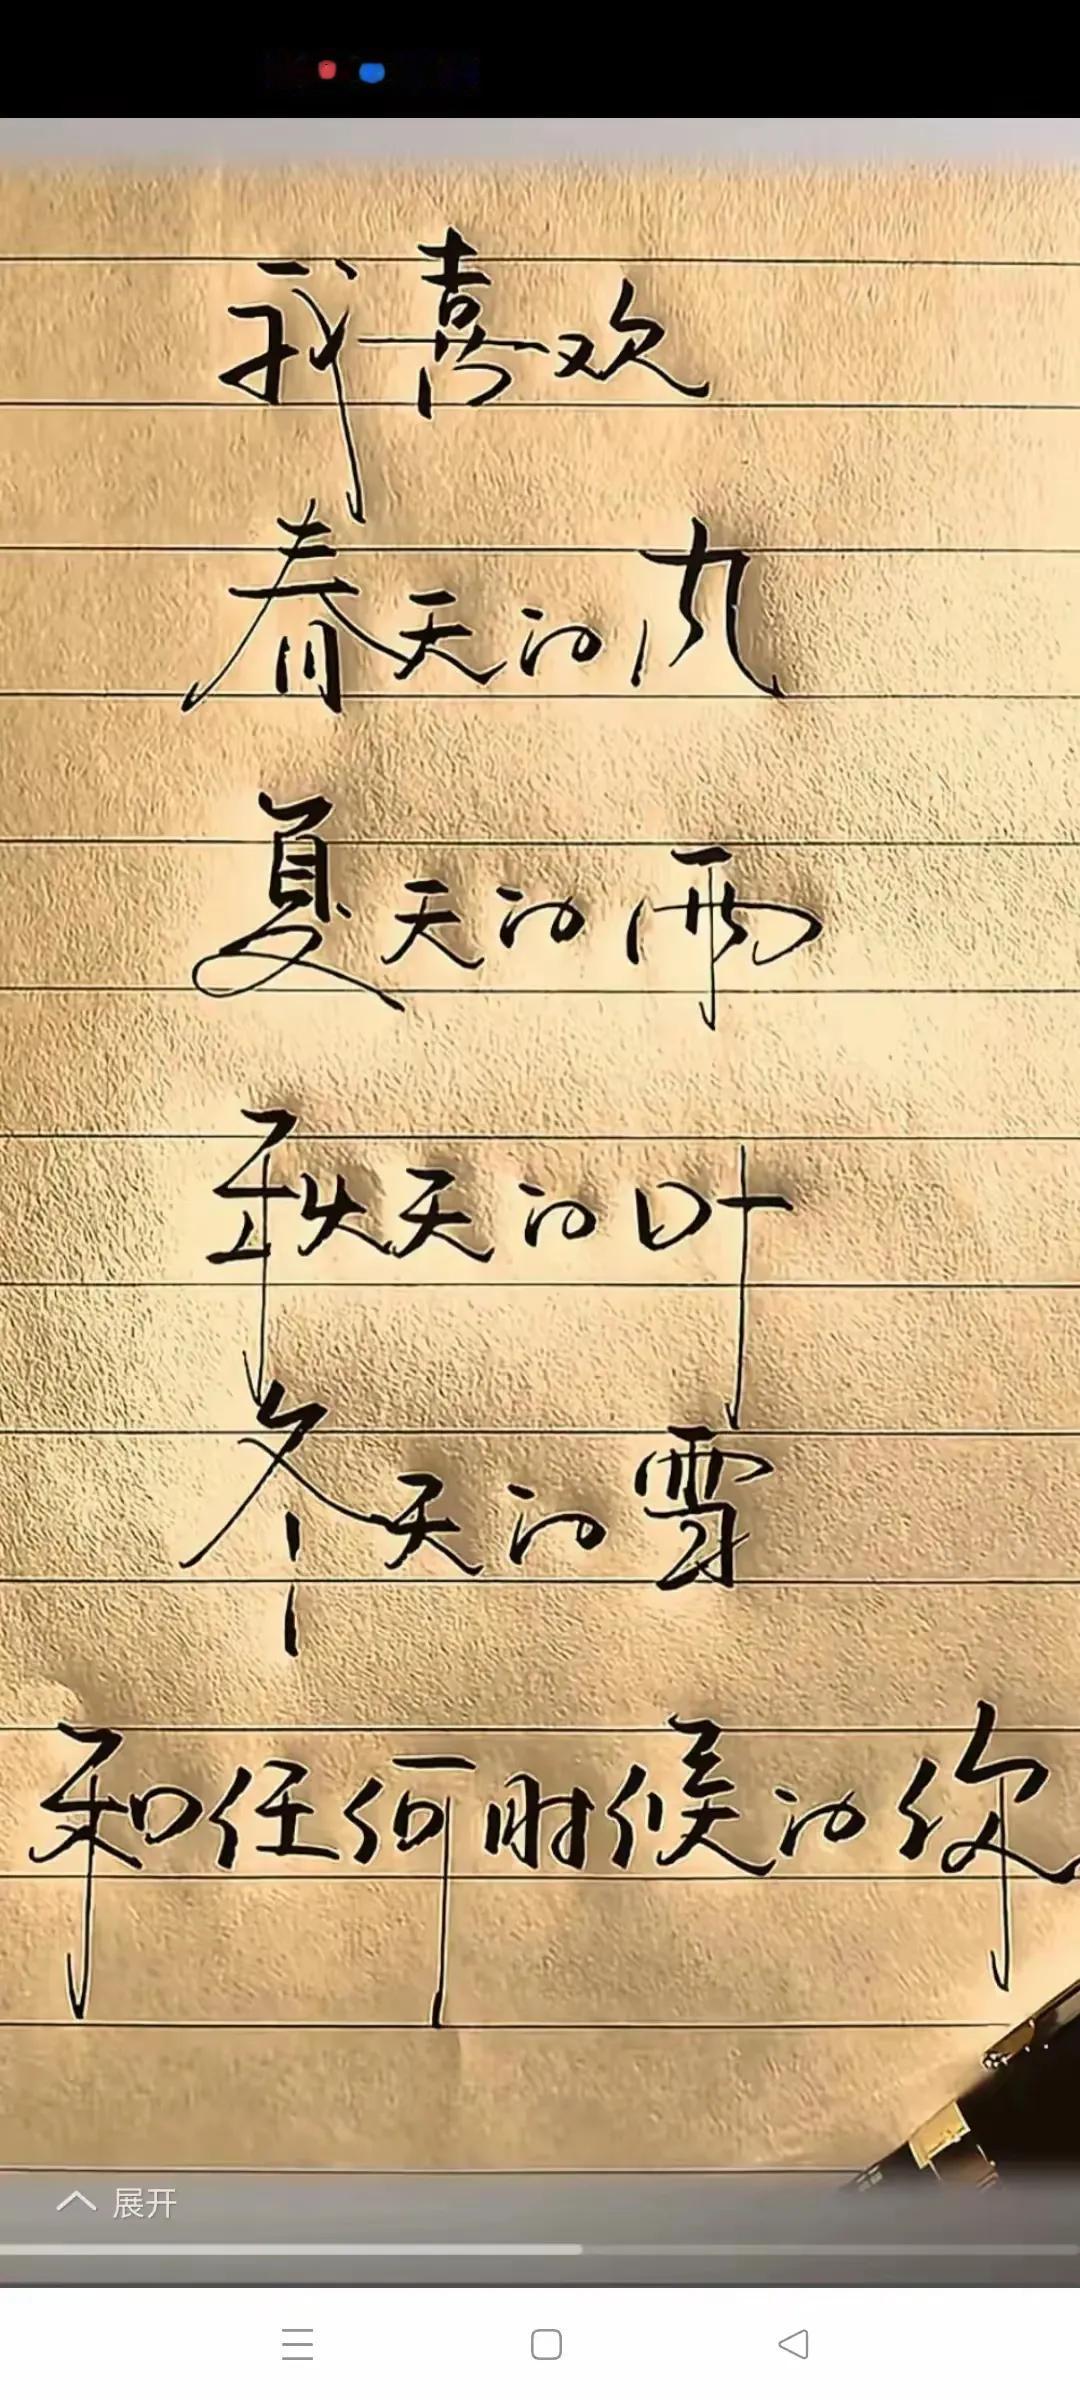 我喜欢
春天的风
夏天的雨
秋天的叶
冬天的雪
和任何时候的你
展开